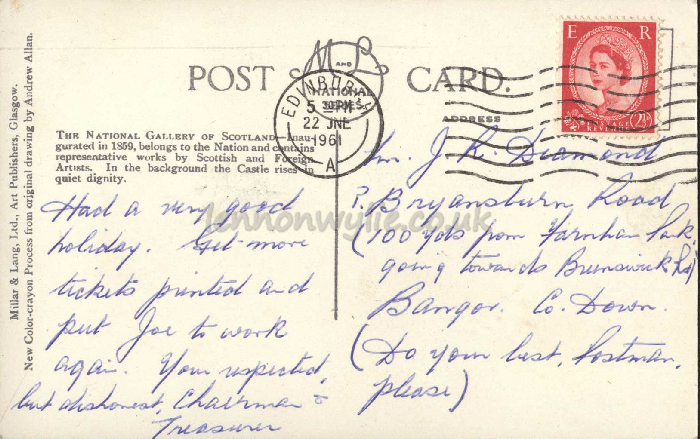 POST CARD.
M AND L
NATIONAL
SERIES.
EDINBURGH
5 - PM
22 JNE
1961
A
E R
POSTAGE
REVENUE
2½D
ADDRESS
THE NATIONAL GALLERY OF SCOTLAND—Inau-
gurated in 1859, belongs to the Nation and contains
representative works by Scottish and Foreign
Artists. In the background the Castle rises in
quiet dignity.
Millar & Lang, Ltd., Art Publishers, Glasgow.
New Color-crayon Process from original drawing by Andrew Allan.
Had a very good
holiday. Get more
tickets printed and
put Joe to work
again. Your respected,
but dishonest, Chairman &
Treasurer
J. K. Diamond
?. Bryansburn Road
(100 yds from Farnham Park
going towards Brunswick Rd)
Bangor. Co. Down.
(Do your best, Postman,
please)
lennonwylie.co.uk